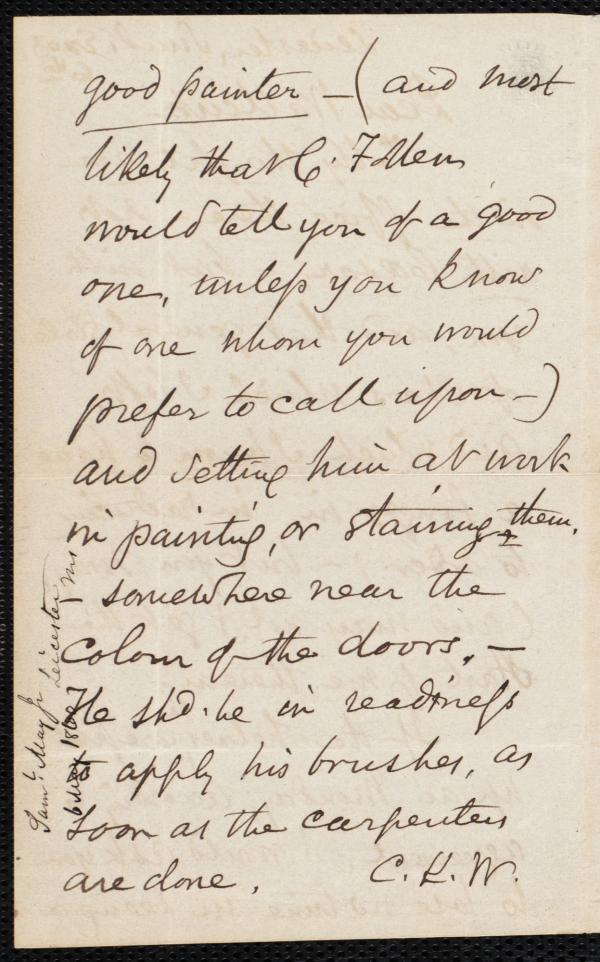 good painter — (and most
likely that C. Follen
would tell you of a good
one, unless you know
of one whom you would
prefer to call upon —)
and setting him at work
in painting, or staining them,
- somewhere near the
colour of the doors, —
He shd. be in readiness
to apply his brushes, as
soon as the carpenters
are done.    C. K. W.
Saml. May Jr Leicester Ms
6 May 186